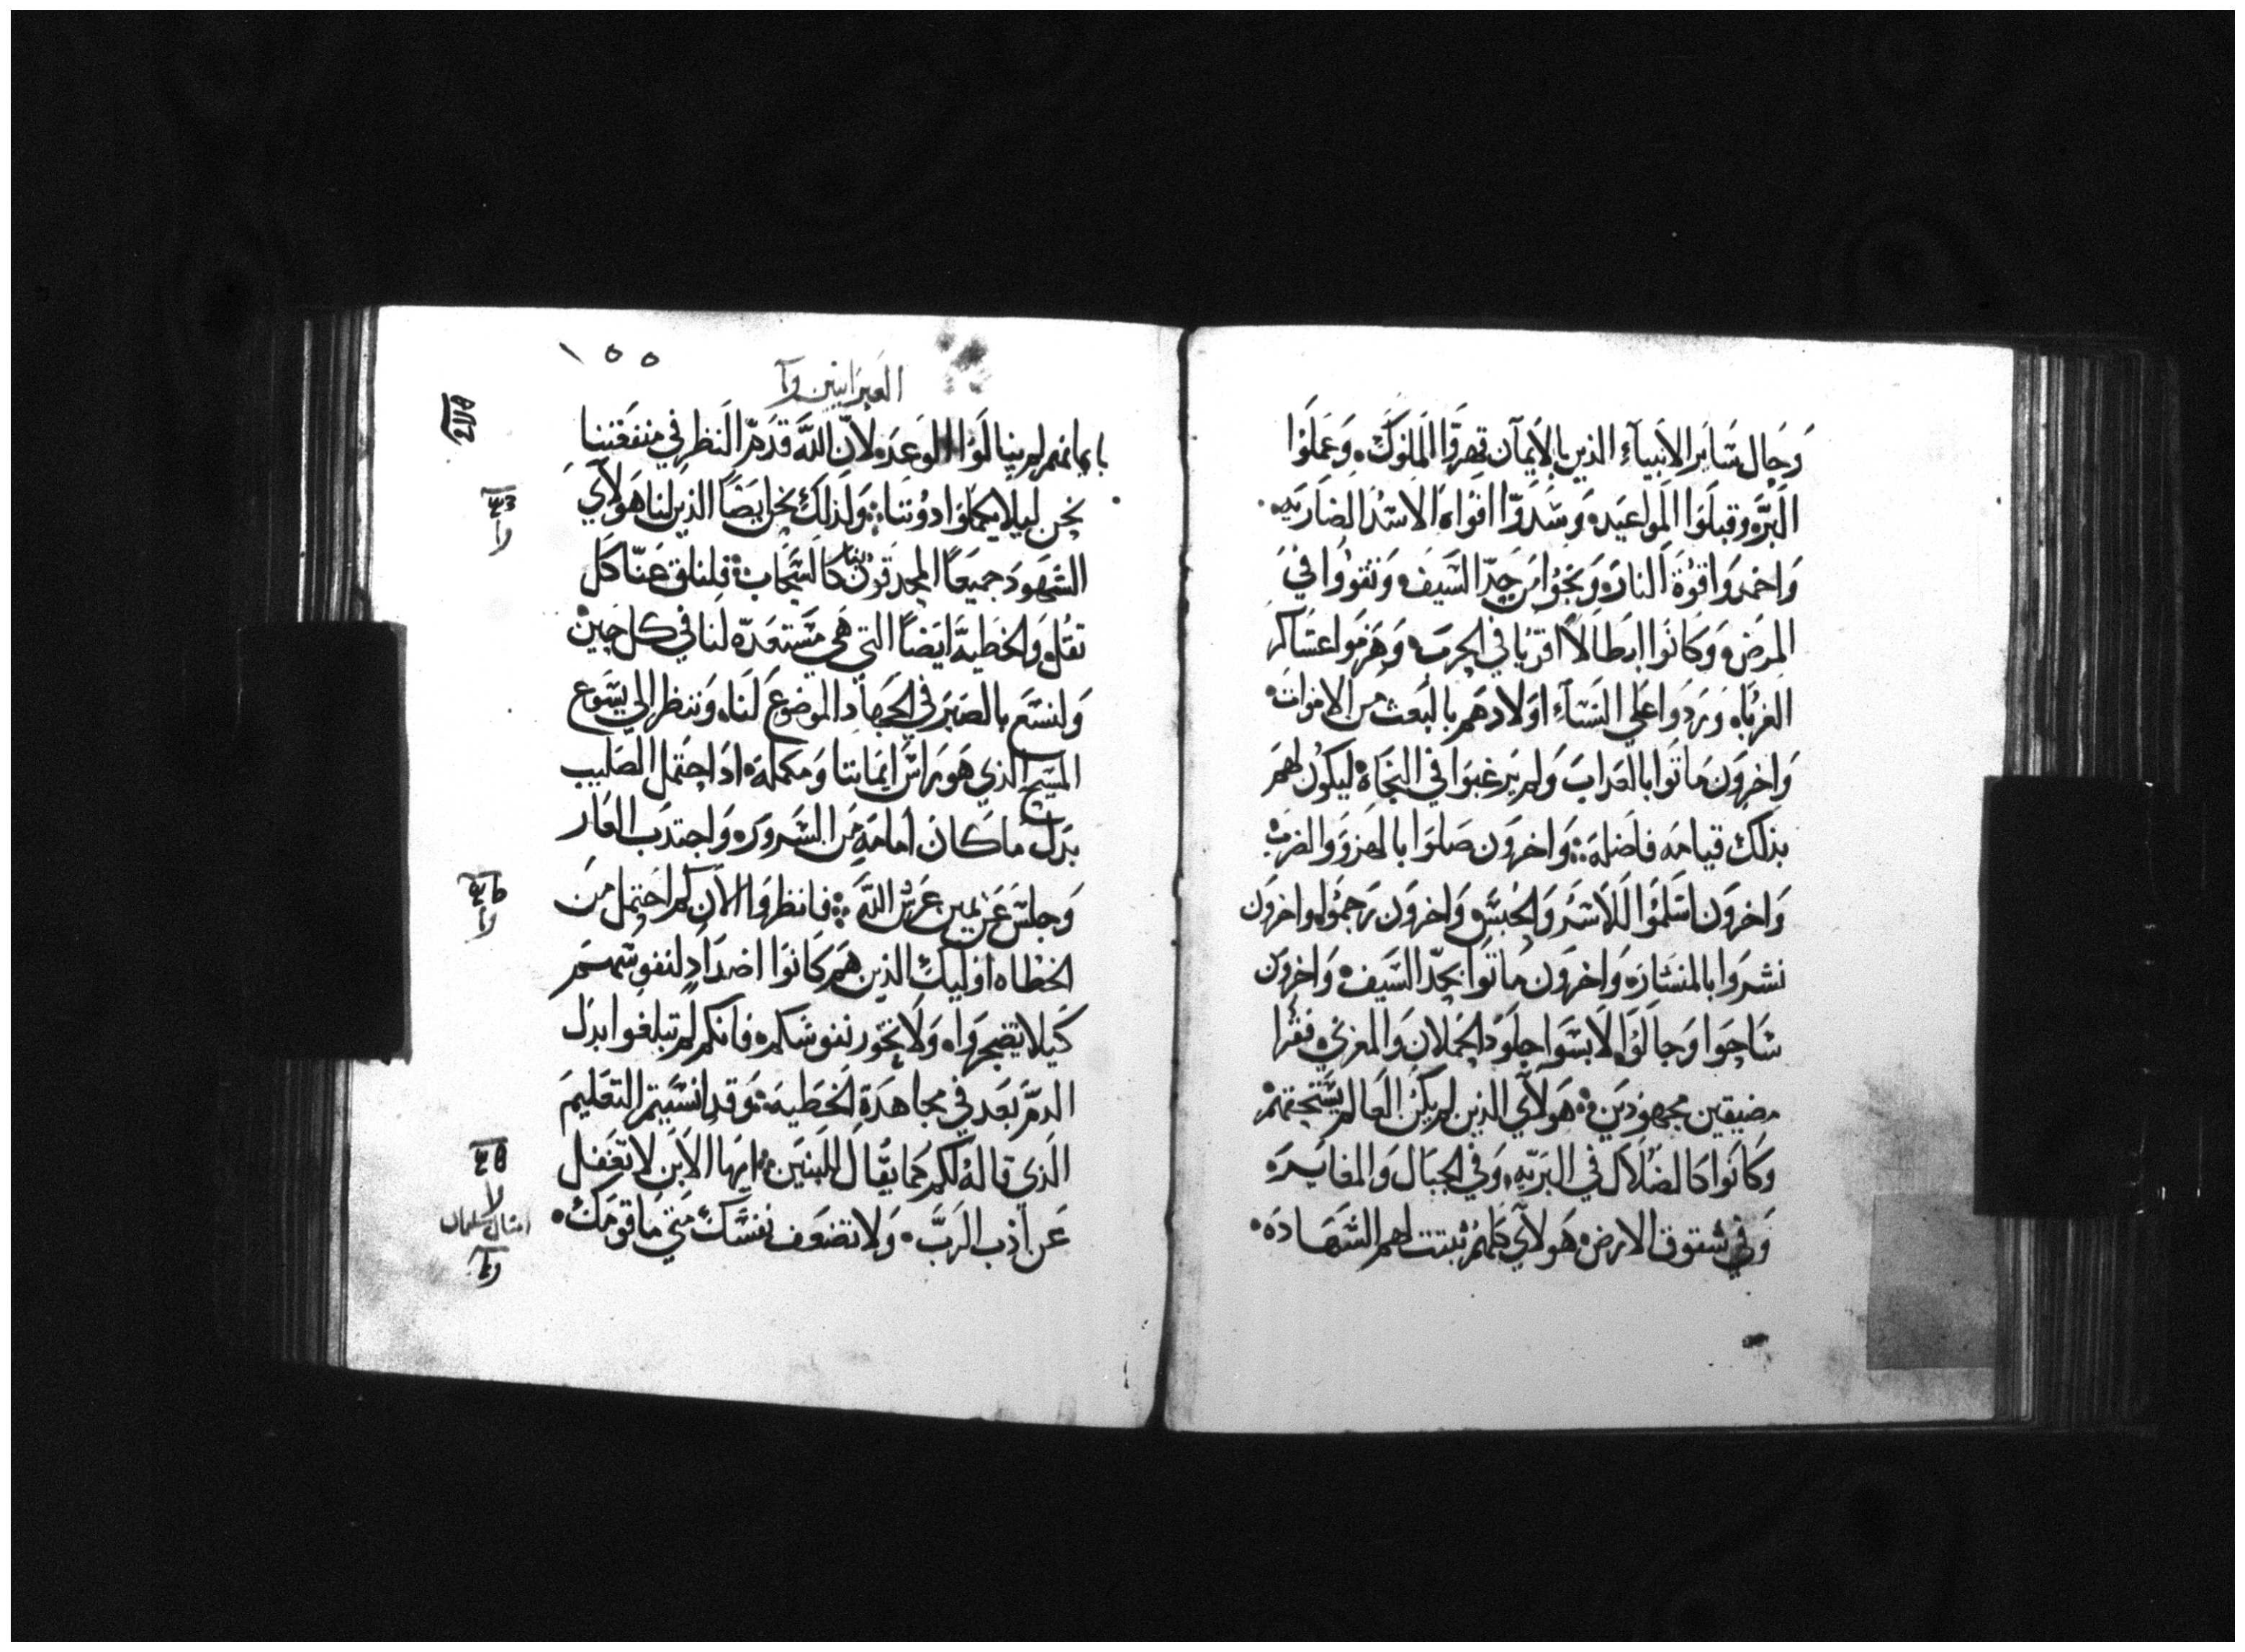 وَحَال سَائر الانبياء الذين بالايمان قهروا الملوك، وَعَملوا
البرَّه وقبلوا المواعيد، وَسَدوّا افواه الاسْد الضاريه،
وَاخمدوا قوة النار، وَنجوا من حدّ السَيف، وَتقووا في
المرض، وَكانوا ابطالاً اقويا في الحرب، وَهزموا عسَاكر
الغربا، وَردوا علي النسَاء اولادهم بالبعث من الاموات،
وَاخرون ماتوا بالعداب وَلم يرغبوا في النجاة ليكون لهم
بذلك قيامه فاضله: وَاخرون صَلوا بالهزو وَالضرب
وَاخرون اسَلموا للاسَر وَالحبسَ، وَاخرون رَجموا، واخرون
نشروا بالمنشار، وَاخرون ماتوا بحدّ السَيف، وَاخرون
سَاحوا وَجالوا، لابسَوا جلود الحملان وَالمعزي، فقرا
مضيقين مجهودين: هَولآي الذين لم يكن العالم يسَتحقهم
وَكانوا كالضلاَل في البرّيه، وَفي الجبال وَالمغاير،
وَفي شقوق الارض، هَولآي كلهم ثبتت لهم الشهَادَه،
١٥٥
العبرانيين
بايمانهم لم ينالوا الوعد، لانّ اللهَ قدّم النظر في منفعتنا
نحن ليلا يكملوا دوننا: وَلذلك نحن ايضاً الذين لنا هَولآي
الشهود جميعاً المحدقون بنا كالسَحاب: فلنلق عنّا كل
تقل، وَالخطيه ايضاً التي هَي مسَتعدّه لنا في كل حين،
وَلنسَع بالصبر في الجهاد الموضوع لنا، وَننظر الي يسَوع
المسَيح الذي هو راسَ ايماننا وَمكمله، اذ احتمل الصليب
بدل ما كان امامه من السَرور، وَاجتدب العار
وَجلسَ عن يمين عرش اللهَ: فانظروا الان كم احتمل من
الخطاه اوليك الذين هَم كانوا اضداد لنفوسَهم
كيلا تضجروا، وَلا تخور نفوسَكم، فانكم لم تبلغوا بدل
الدمّ بَعد في مجاهدَة الخطيه: وَقد انسَيتم التعليم
الذي قاله لكم كما يقال للبنين: ايها الابن لا تغفل
عَن ادب الربَّ، وَلا تضعف نفسَك متي ما قومك،
امثال سليمان